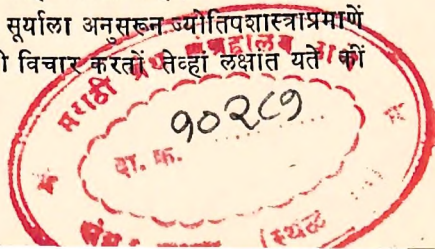 सूर्याला अनुसरून ज्योतिपशास्त्राप्रमाणें
विचार करतों तेव्हां लक्षात यते कीं
मराठी ग्रंथ संग्रहालय
दा. क्र. १०२८७
स्थळ